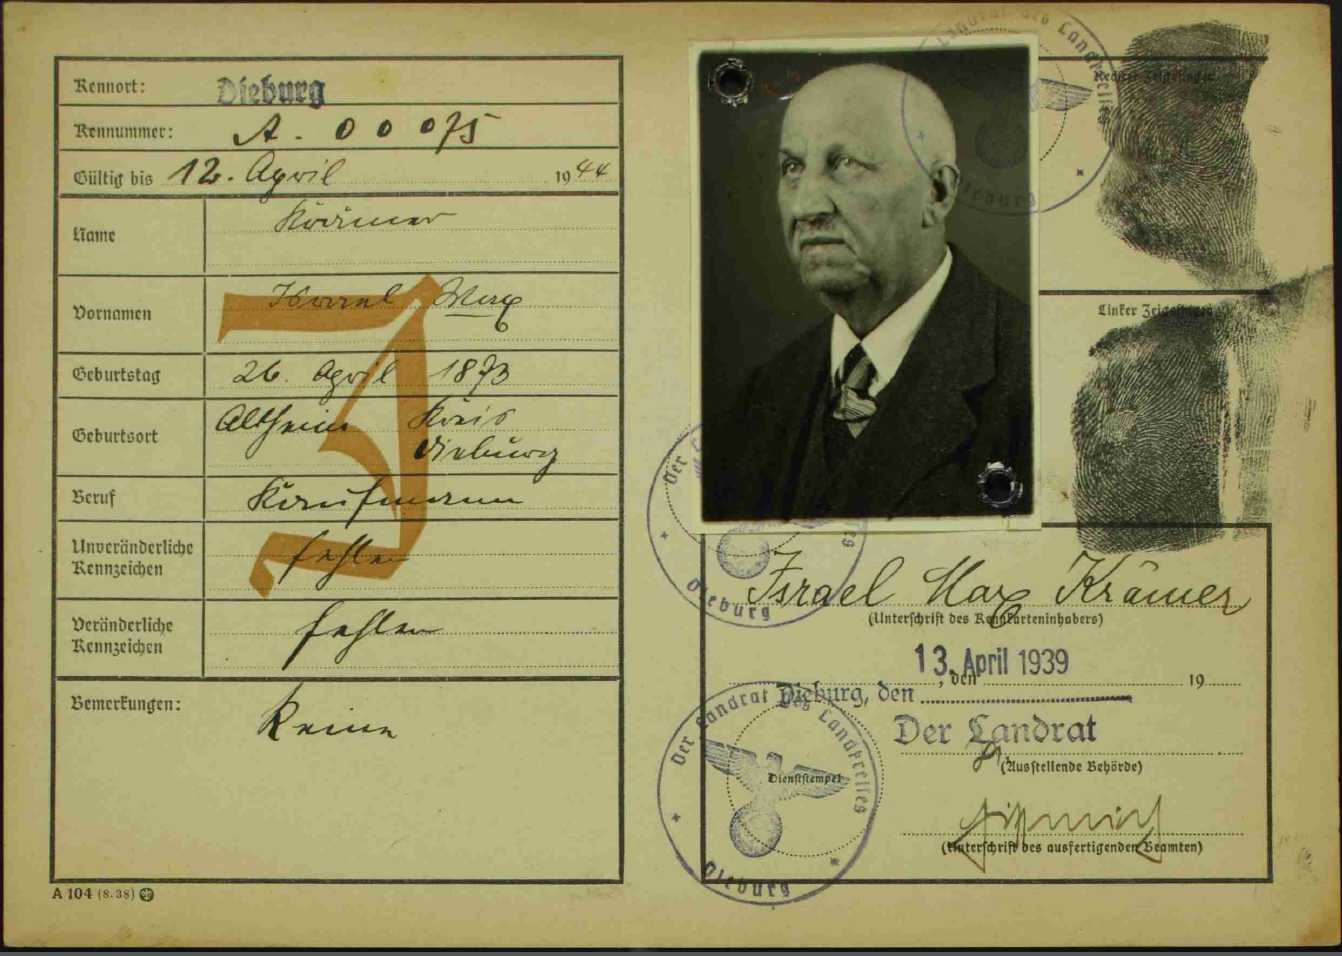 Kennort: Dieburg
Kennummer: A - 00075
Gültig bis 12. April 1944
Name Krämer
Vornamen Israel Max
Geburtstag 26. April 1873
Geburtsort Altheim Kreis
Dieburg
Beruf Kaufmann
Unveränderliche
Kennzeichen fehlen
Veränderliche
Kennzeichen fehlen
Bemerkungen: Keine
J
A 104 (8. 38)
Rechter Zeigefinger
Linker Zeigefinger
Der Landrat des Landkreises
Dieburg
Israel Max Krämer
(Unterschrift des Kennkarteninhabers)
13. April 1939
, den 19
Dieburg, den
Der Landrat
(Ausstellende Behörde)
Der Landrat des Landkreises
Dienststempel
Dieburg
(Unterschrift des ausfertigenden Beamten)